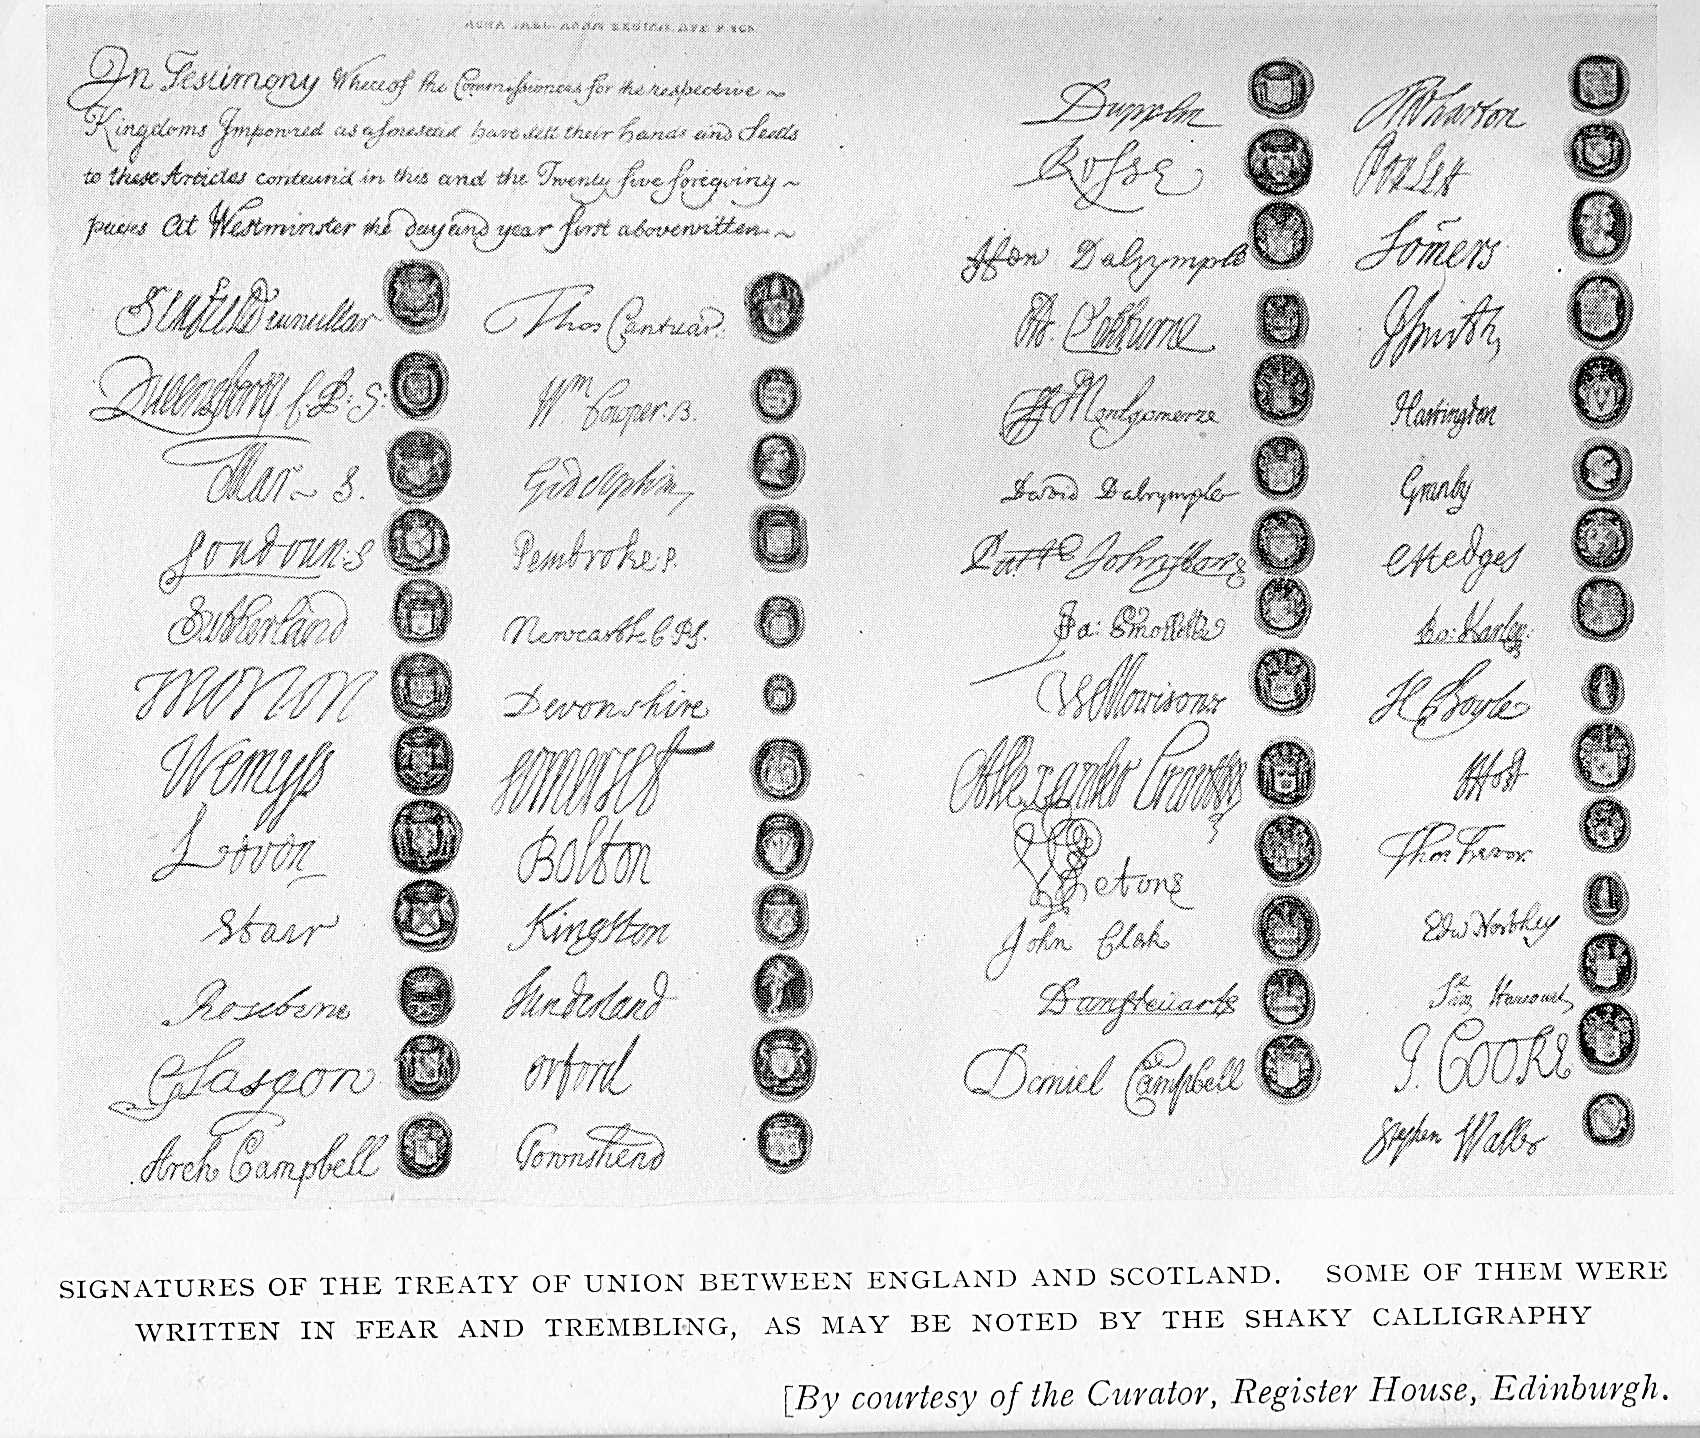 In Testimony Whereof the Commissioners for the respective ~
Kingdoms Impowred as aforesaid have sett their hands and Seals
to these Articles contain'd in this and the Twenty five foregoing ~
pages At Westminster the day and year first abovewritten ~
Seafield Cancellar
Queensberry C.P.S:
Mar ~ S.
Loudoun:S
Sutherland
Morton
Wemyss
Leven
Stair
Roseberie
Glasgow
Arch Campbell
Tho: Cantuar.
Wm Cowper.
Godolphin
Pembroke P.
Newcastle C P S.
Devonshire
Somerset
Bolton
Kingston
Sunderland
Orford
Townshend
Dupplin
Rosse
Hew Dalrymple
Ad. Cockburne
Fr Montgomerie
David Dalrymple
Pat: Johnston
Ja: Smollett
W Morisone
Alexander Grant
Setone
John Clerk
Dan Steuarte
Daniel Campbell
Wharton
Poulett
Somers
J Smith
Hartington
Granby
C Hedges
Ro: Harley:
H Boyle
J Holt
Tho: Trevor
Edw Northey
Sim Harcourt
J. COOKE
Stephen Waller
SIGNATURES OF THE TREATY OF UNION BETWEEN ENGLAND AND SCOTLAND. SOME OF THEM WERE
WRITTEN IN FEAR AND TREMBLING, AS MAY BE NOTED BY THE SHAKY CALLIGRAPHY
[By courtesy of the Curator, Register House, Edinburgh.